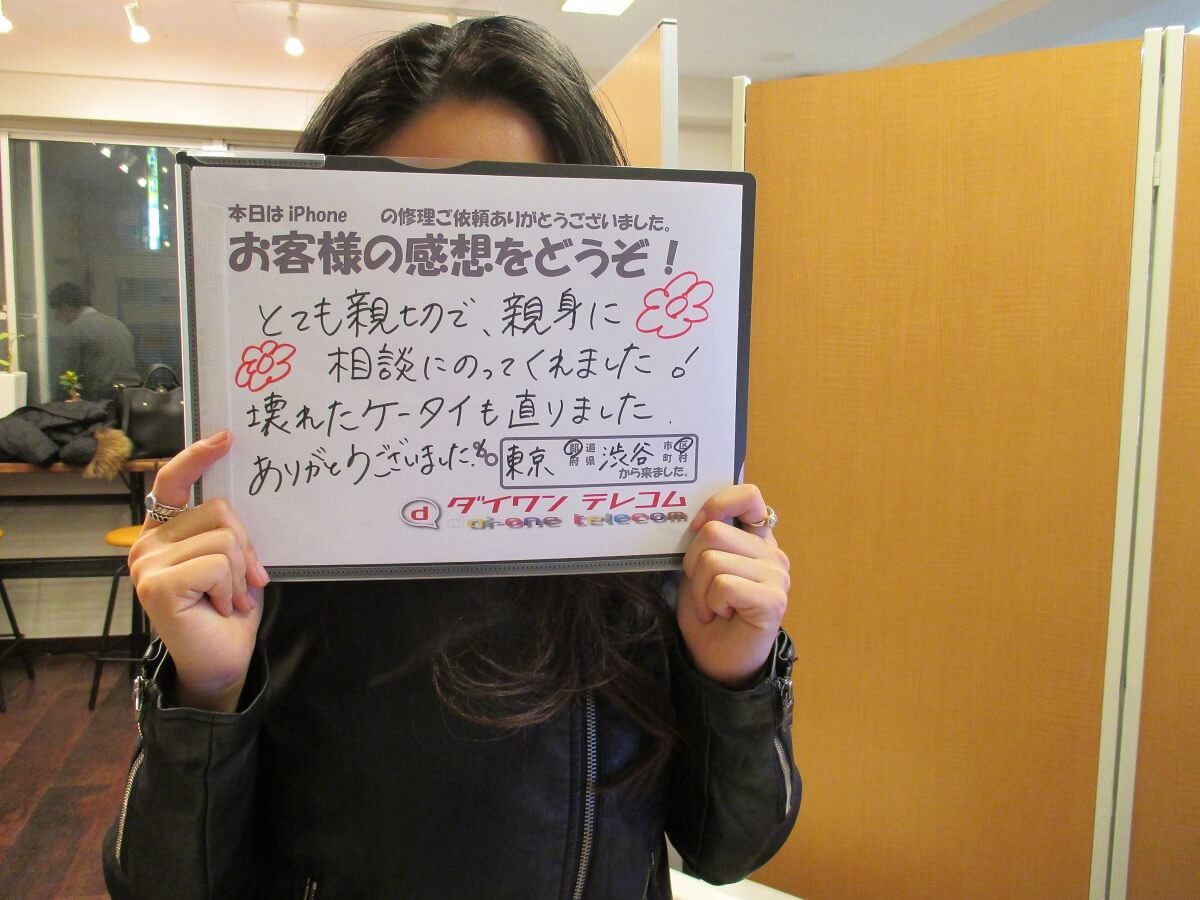 本日は iPhone の修理ご依頼ありがとうございました。
お客様の感想をどうぞ！
とても親切ので、親身に
相談にのってくれました！
壊れたケータイも直りました.
ありがとうございました。
東京 都道府県 渋谷 市区町村
から来ました。
ダイワン テレコム
dai-one telecom